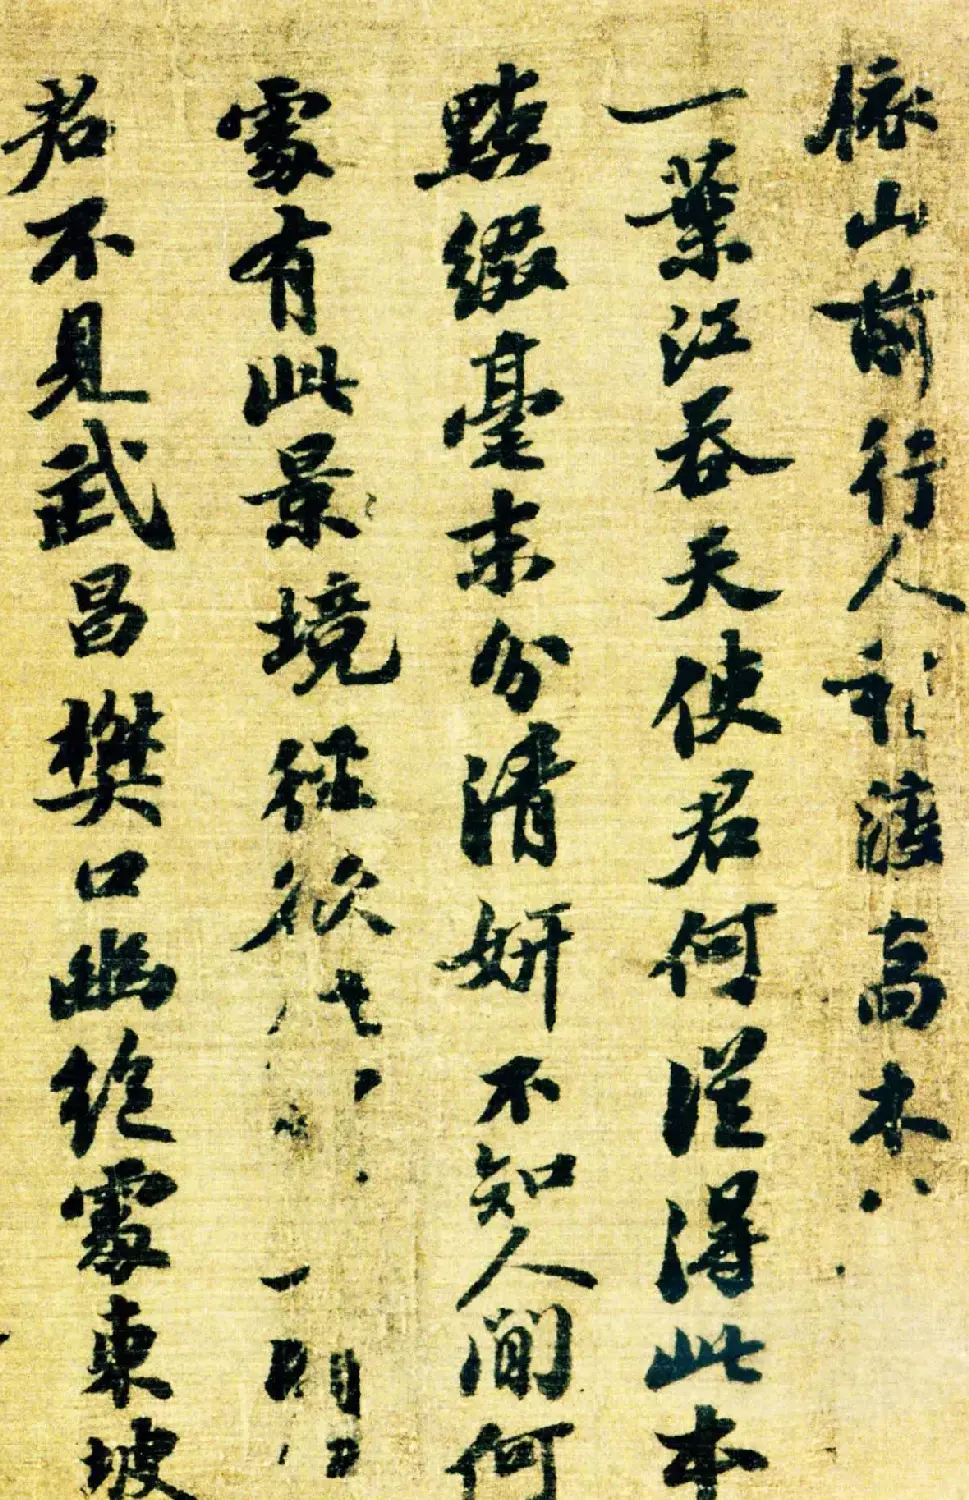 依山前行人稍渡高木
一葉江吞天使君何從得此本
點綴毫末分清妍不知人間何
處有此景境徑欲
君不見武昌樊口幽絕處東坡